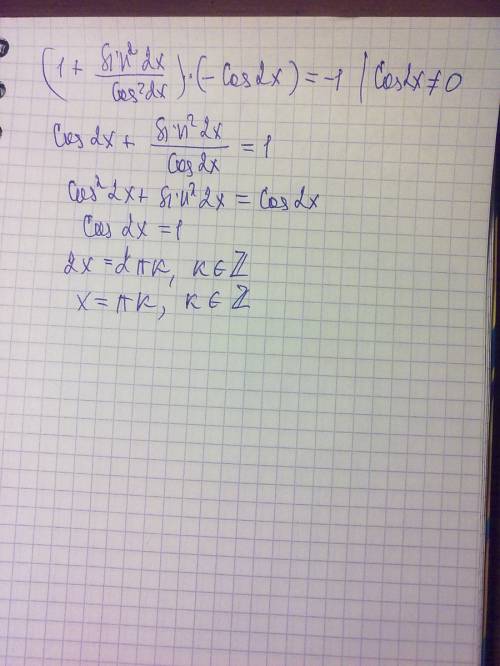 (1 + sin²2x / cos²2x) · (− cos2x) = −1 | cos2x ≠ 0
cos 2x + sin²2x / cos2x = 1
cos²2x + sin²2x = cos2x
cos 2x = 1
2x = 2πk, k ∈ ℤ
x = πk, k ∈ ℤ